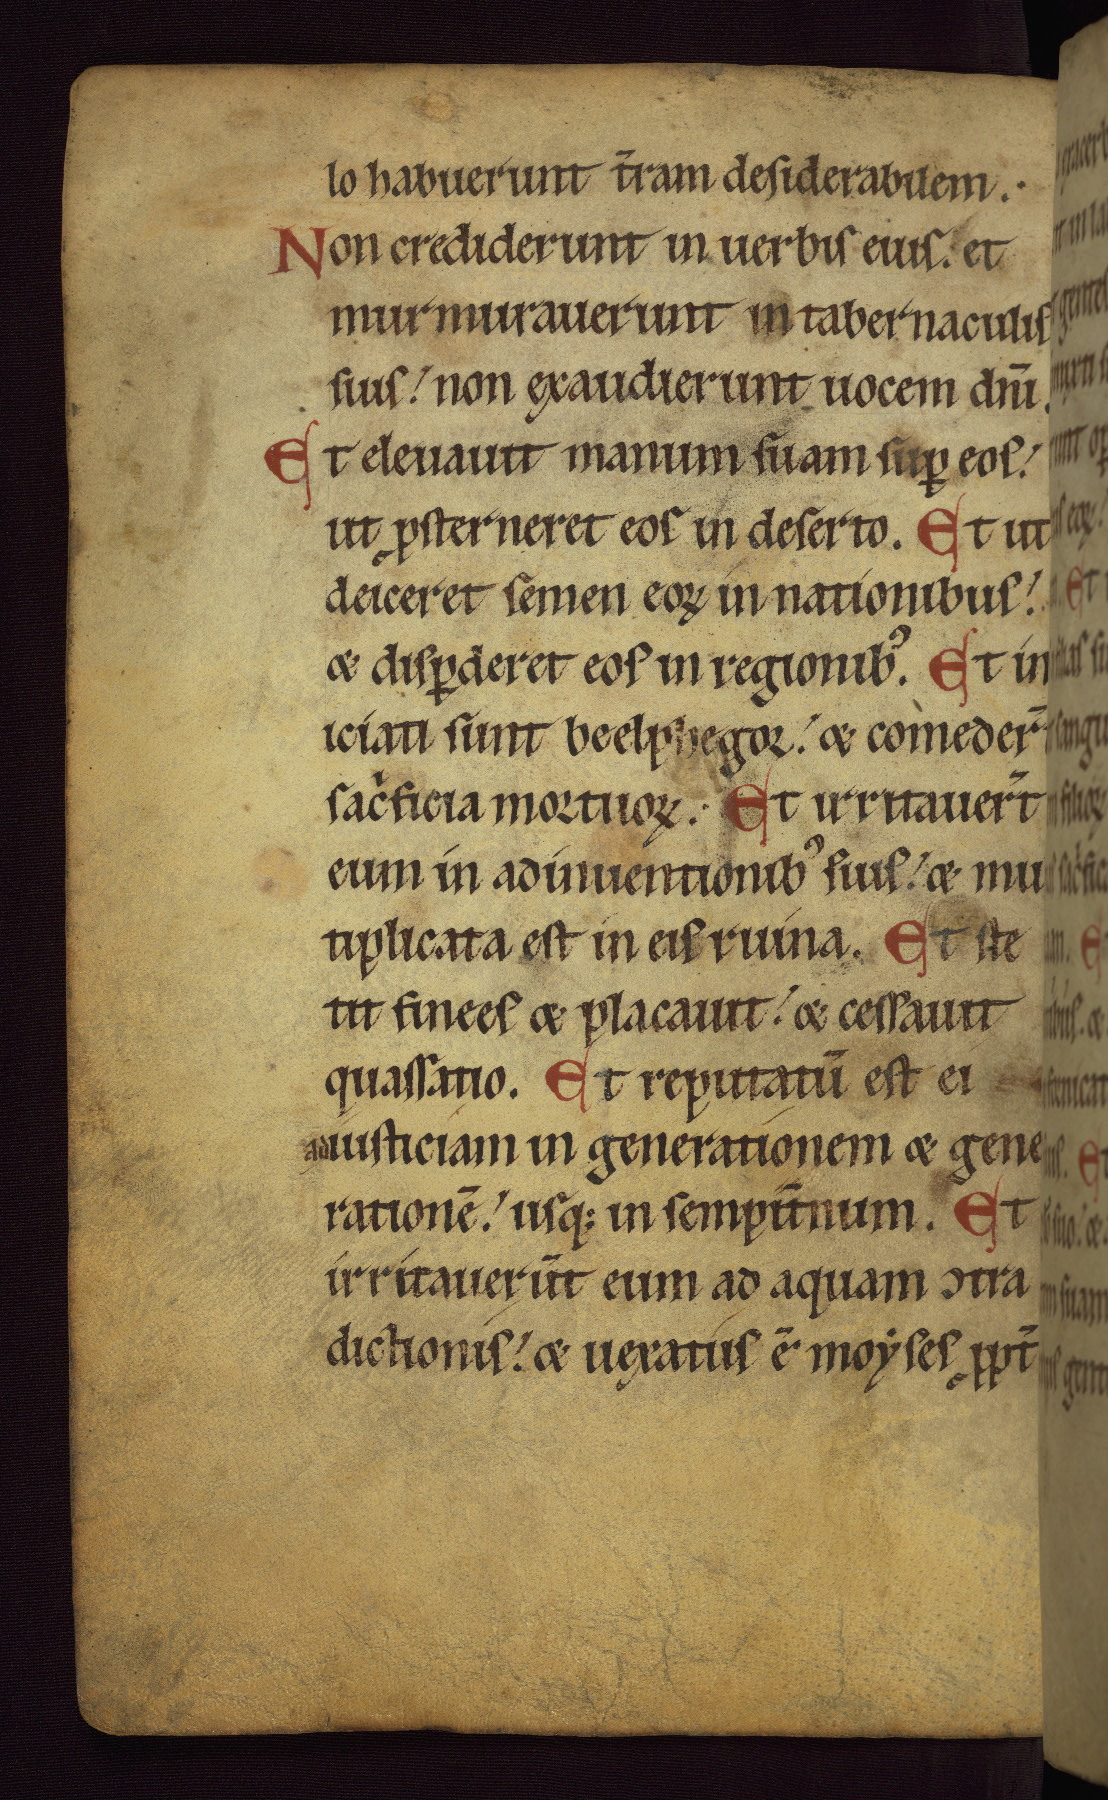 lo habuerunt t̄ram desiderabilem.
Non crediderunt in uerbis eius. et
murmurauerunt in tabernaculis
suis! non exaudierunt uocem dn̄i.
Et eleuauit manum suam sup̱ eos!
ut ꝓsterneret eos in deserto. Et ut
deiceret semen eoꝝ in nationibus!
⁊ disp̱deret eos in regionibꝰ. Et in
iciati sunt beelphegor! ⁊ comeder̄
sac̍ficia mortuoꝝ. Et irritauer̄t
eum in adinuentionibꝰ suis! ⁊ mu
tiplicata est in eis ruina. Et ste
tit finees ⁊ placauit! ⁊ cessauit
quassatio. Et reputatū est ei
adiusticiam in generationem ⁊ gene
rationē! usq; in sempit̄num. Et
irritauerūt eum ad aquam ↄtra
dictionis! ⁊ uexatus ē moẏses ꝓpt̄